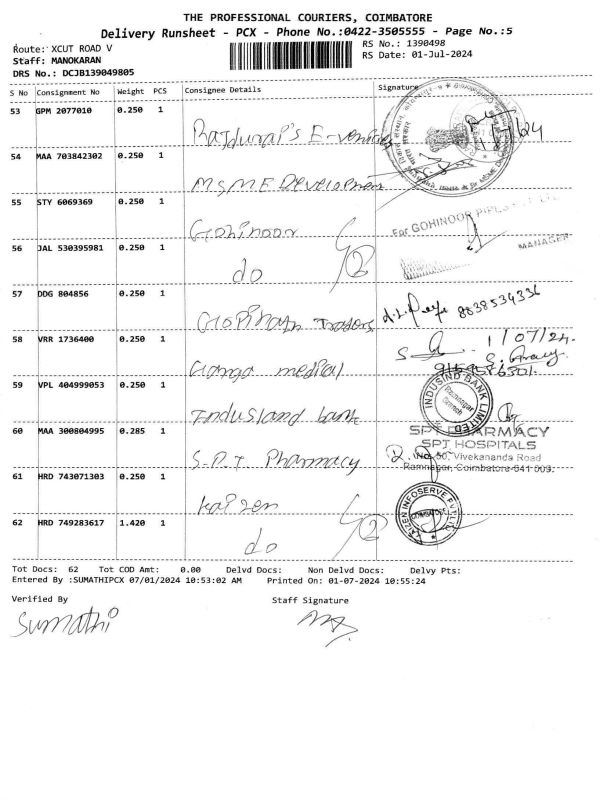 THE PROFESSIONAL COURIERS, COIMBATORE
Delivery Runsheet - PCX - Phone No.:0422-3505555 - Page No.:5
Route: XCUT ROAD V
RS No.: 1390498
Staff: MANOKARAN
RS Date: 01-Jul-2024
DRS No.: DCJB139049805
S No Consignment No Weight PCS Consignee Details Signature
53 GPM 2077010 0.250 1
54 MAA 703842302 0.250 1 MSME Development
55 STY 6069369 0.250 1 Gohinoor For GOHINOOR PIPES
MANAGER
56 JAL 530395981 0.250 1 do
57 DDG 804856 0.250 1 Gopinath Traders 8838534336
58 VRR 1736400 0.250 1 Ganga medical 1/07/24.
59 VPL 404999053 0.250 1 Indusland bank INDUSIND BANK LIMITED
Ramnagar Branch
60 MAA 300804995 0.285 1 S.P.T Pharmacy SPT PHARMACY
SPT HOSPITALS
No 50, Vivekananda Road
Ramnagar, Coimbatore-641 009.
61 HRD 743071303 0.250 1 kaizen KAIZEN INFOSERVE PVT LTD
COIMBATORE
62 HRD 749283617 1.420 1 do
Tot Docs: 62 Tot COD Amt: 0.00 Delvd Docs: Non Delvd Docs: Delvy Pts:
Entered By :SUMATHIPCX 07/01/2024 10:53:02 AM Printed On: 01-07-2024 10:55:24
Verified By Staff Signature
Sumathi